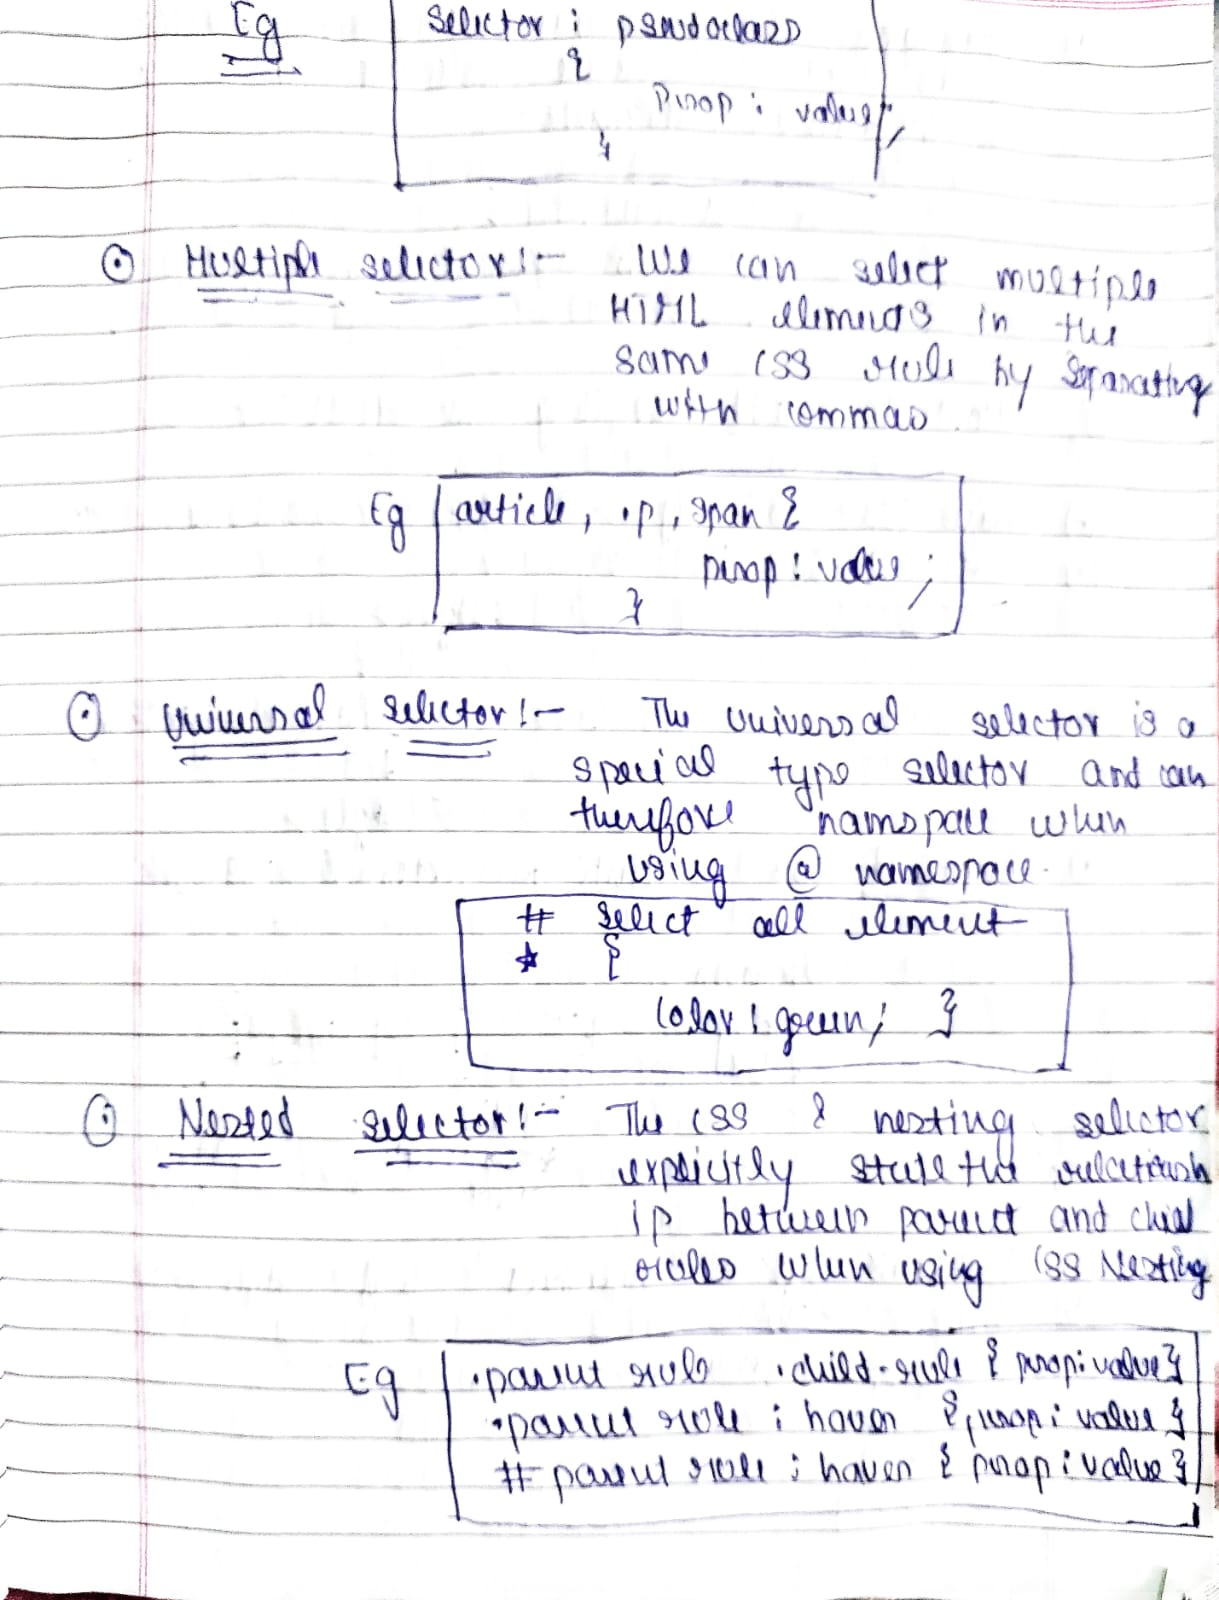 Eg
selector : pseudoclass
{
prop : value;
}
⊙ Multiple selector :- We can select multiple
HTML elements in the
same CSS rule by separating
with commas.
Eg article, .p, span {
prop : value ;
}
⊙ Universal selector :- The universal selector is a
special type selector and can
therefore namespace when
using @ namespace.
# select all element
* {
color : green; }
⊙ Nested selector :- The CSS & nesting selector
explicitly state the relationsh
ip between parent and child
rules when using CSS Nesting
Eg .parent rule .child-rule { prop: value }
.parent rule : haver { prop : value }
# parent rule : haver { prop : value }